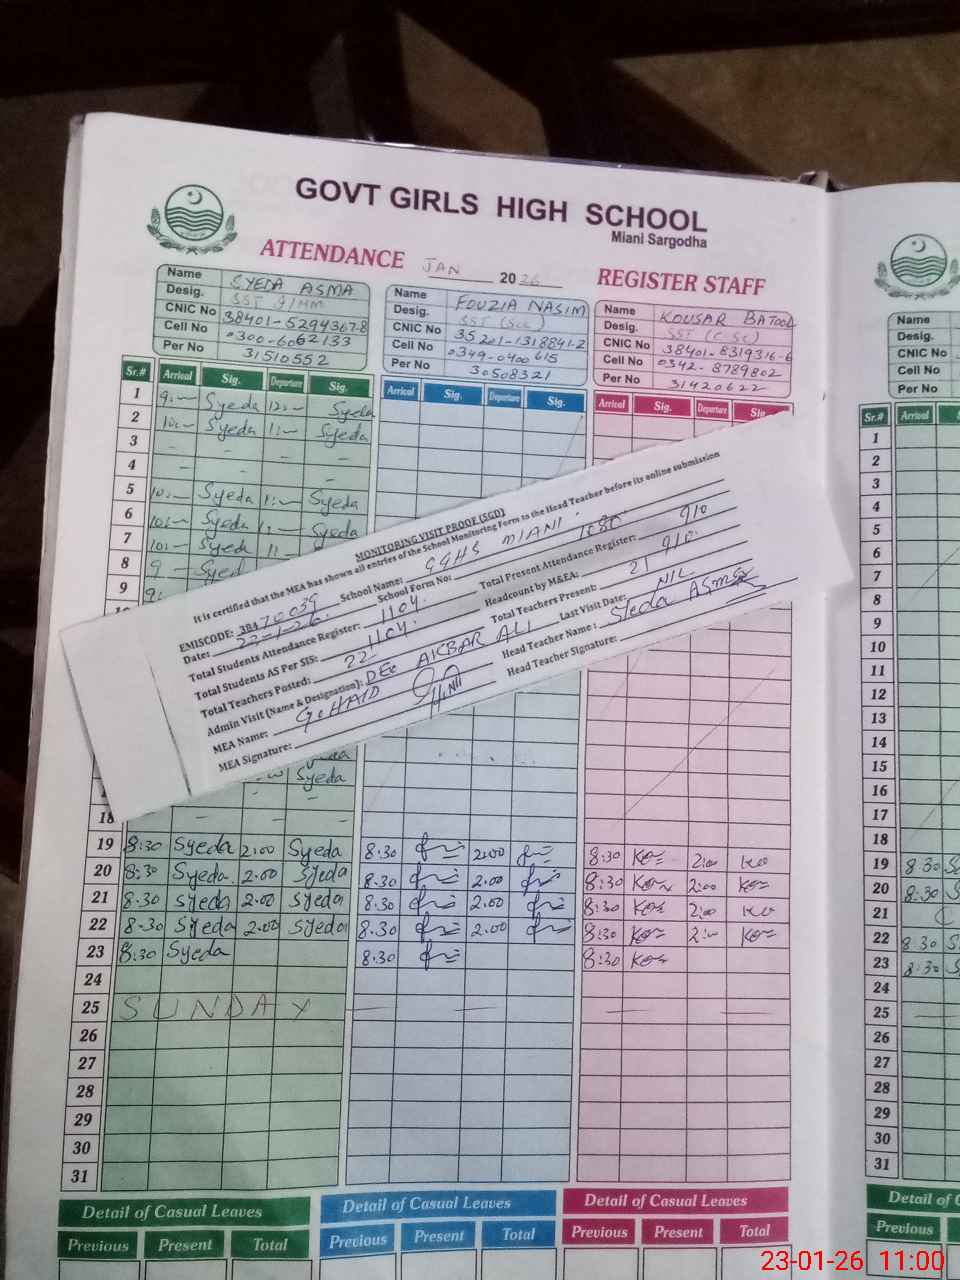 GOVT GIRLS HIGH SCHOOL
Miani Sargodha
ATTENDANCE JAN 2026 REGISTER STAFF
Name SYEDA ASMA
Desig. SST
CNIC No 38401-5294367-8
Cell No 0300-6062133
Per No 31510552
Name FOUZIA NASIM
Desig. SST (Sci)
CNIC No 35201-1318841-2
Cell No 0349-0400615
Per No 30508321
Name KOUSAR BATOOL
Desig. SST (C.Sc)
CNIC No 38401-8319316-6
Cell No 0342-8789802
Per No 31420622
Name
Desig.
CNIC No
Cell No
Per No
Sr.# Arrival Sig. Departure Sig. Arrival Sig. Departure Sig. Arrival Sig. Departure Sig. Sr.# Arrival
1 Syeda Syeda 1
2 Syeda Syeda 2
3 - - - - 3
4 - - - 4
5 Syeda Syeda 5
6 Syeda Syeda 6
7 Syeda 7
8 9 Syed 8
9 9
MONITORING VISIT PROOF (SGD)
It is certified that the MEA has shown all entries of the School Monitoring Form to the Head Teacher before its online submission
EMISCODE: 38470039 School Name: GGHS MIANI
Date: 22-1-26 School Form No: 1080
Total Students Attendance Register: 1104 Total Present Attendance Register: 910
Total Students AS Per SIS: 1104 Headcount by M&EA: 910
Total Teachers Posted: 22 Total Teachers Present: 21
Admin Visit (Name & Designation): DEO AKBAR ALI Last Visit Date: NIL
MEA Name: Head Teacher Name: Syeda ASMA
MEA Signature: Head Teacher Signature:
10
11
12
13
14
15
16
Syeda 17
18 - - 18
19 8:30 Syeda 2:00 Syeda 8.30 2.00 8:30 2:00 19 8:30
20 8:30 Syeda 2.00 Syeda 8.30 2.00 8:30 2:00 20 8:30
21 8.30 Syeda 2.00 Syeda 8.30 2.00 8:30 2:00 21
22 8.30 Syeda 2.00 Syeda 8.30 2.00 8:30 2:00 22 8:30
23 8:30 Syeda 8.30 8:30 23 8:30
24 24
25 SUNDAY 25
26 26
27 27
28 28
29 29
30 30
31 31
Detail of Casual Leaves Detail of Casual Leaves Detail of Casual Leaves Detail of
Previous Present Total Previous Present Total Previous Present Total Previous
23-01-26 11:00